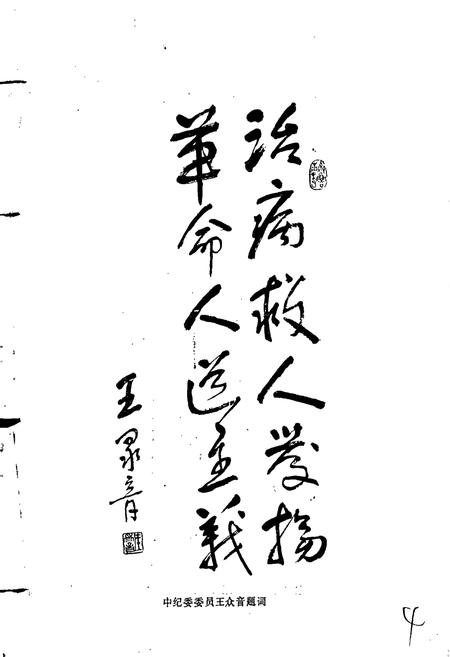 治病救人發揚
革命人道主義
王众音
中纪委委员王众音题词
4